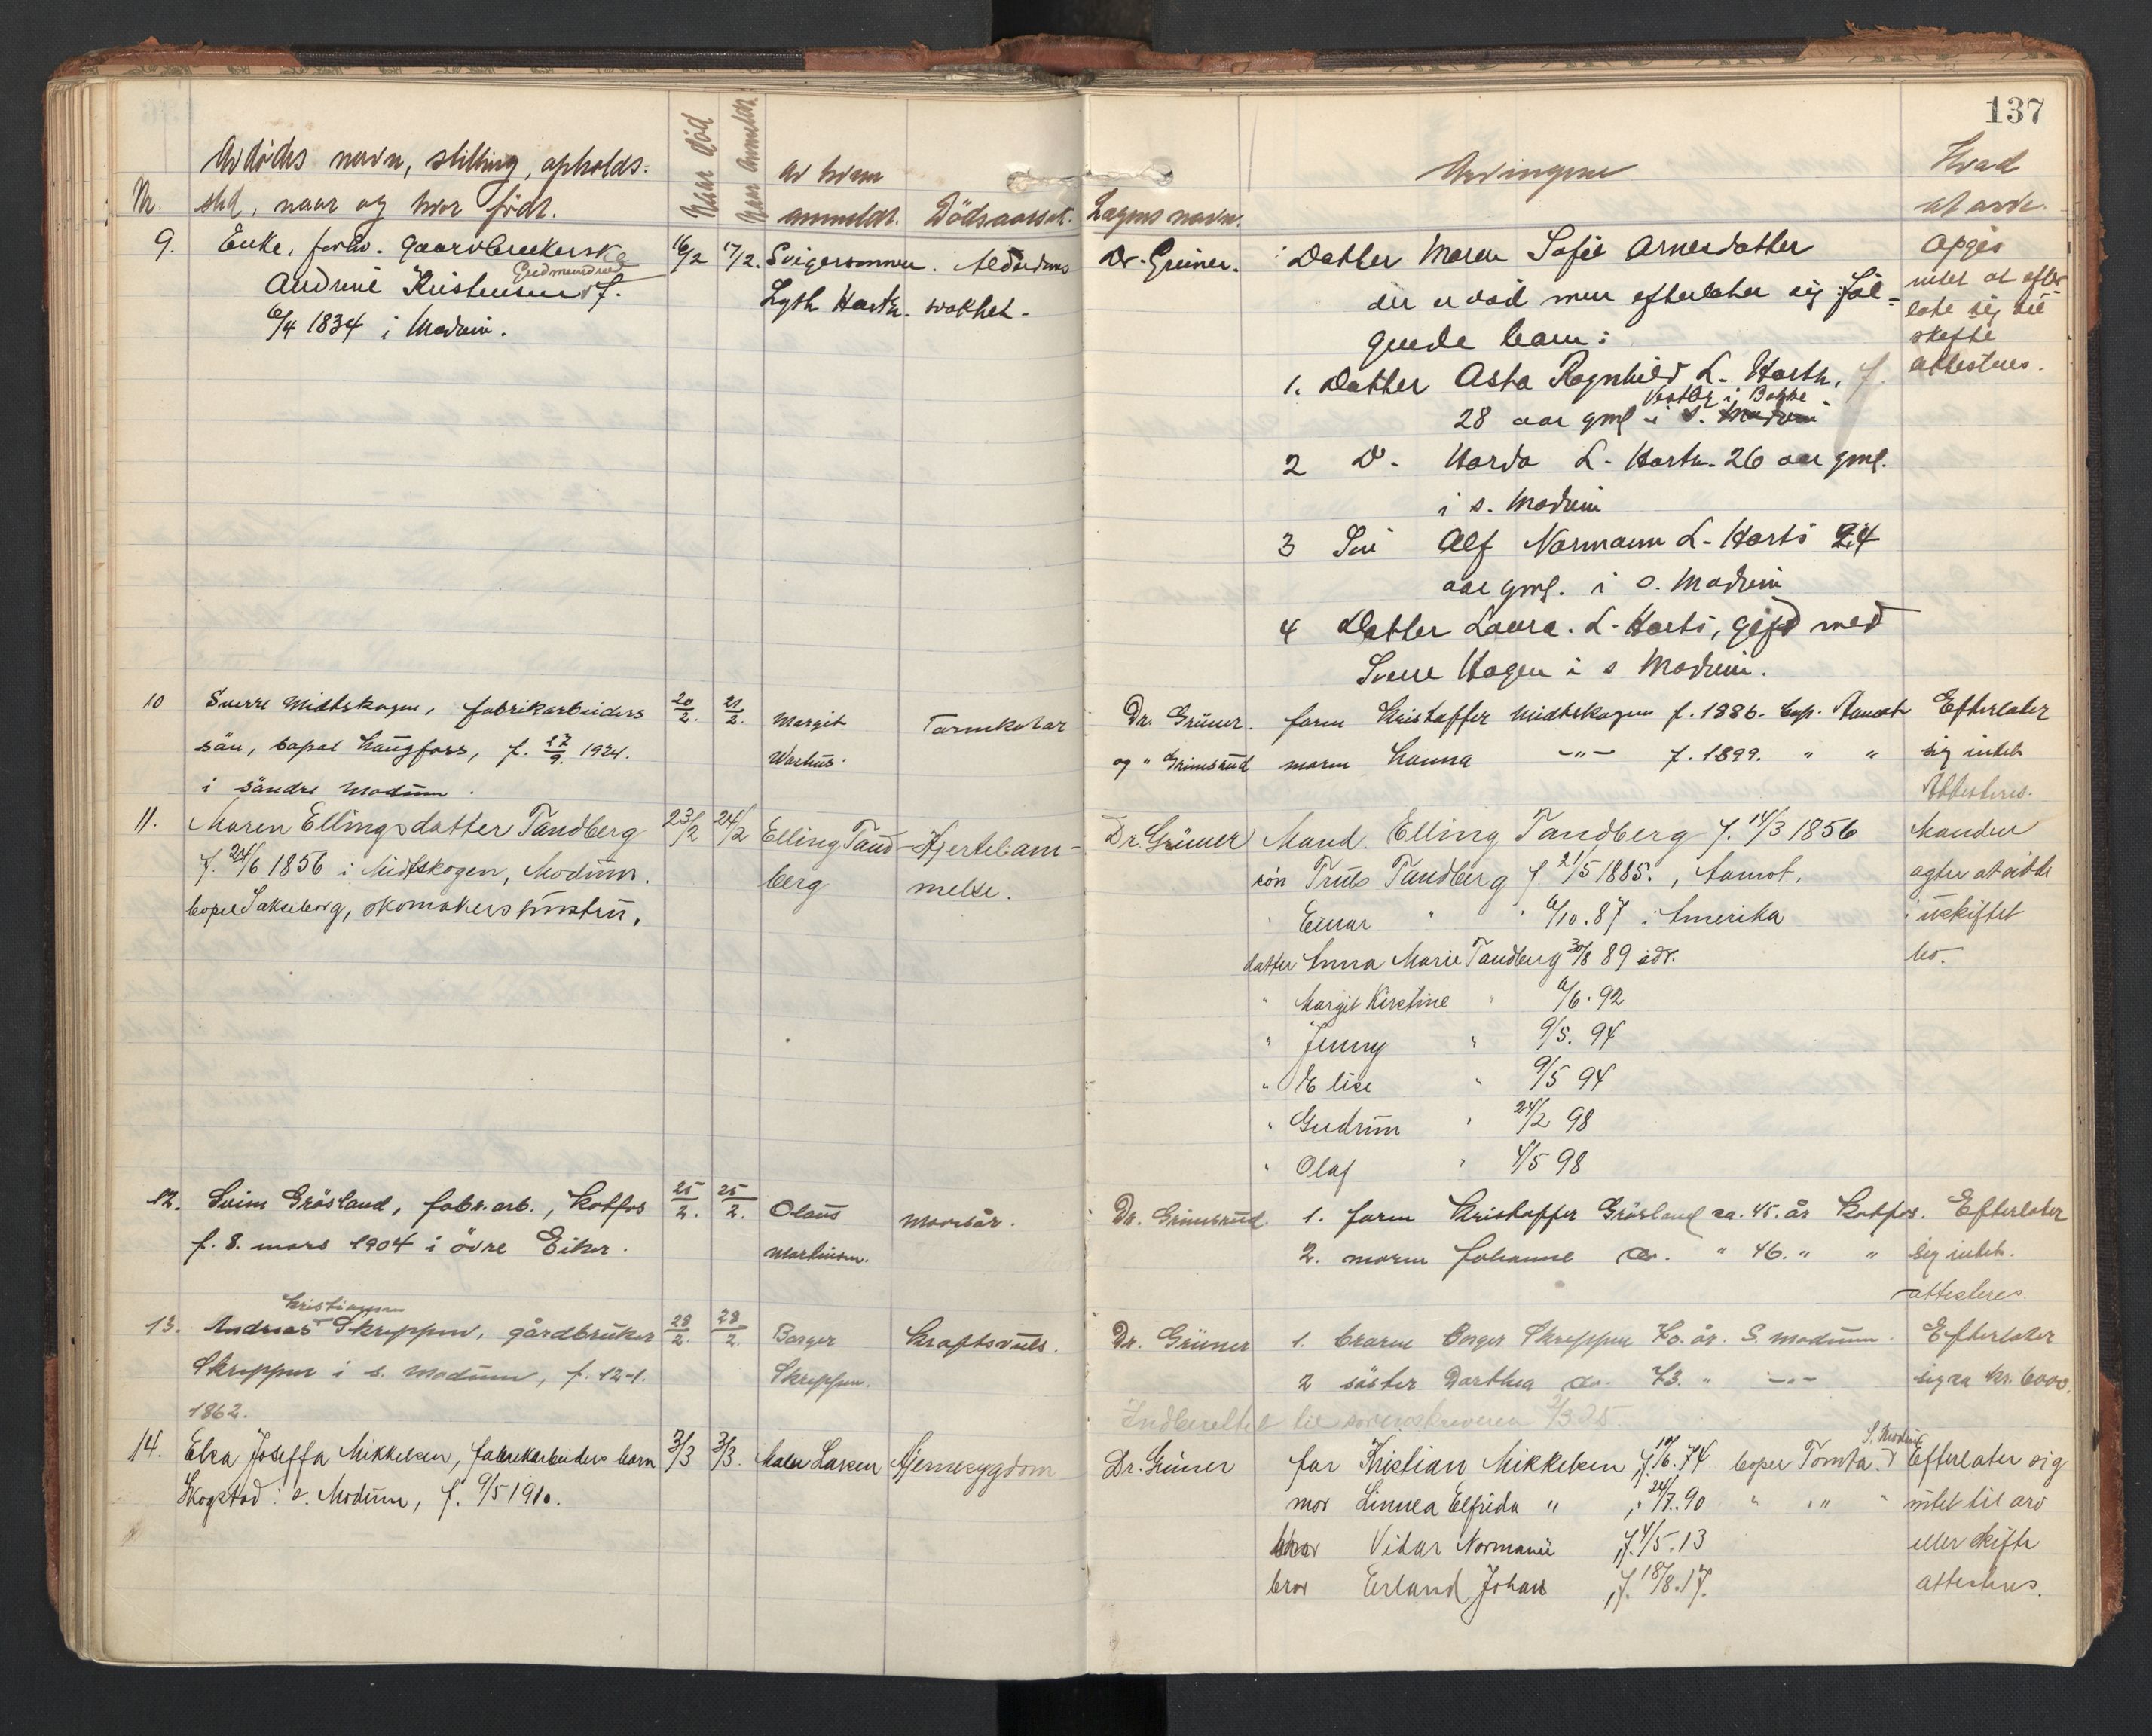 137
Nr.
Avdødes navn, stilling, opholds-
sted, naar og hvor født.
Naar død
Naar anmeldt.
Av hvem
anmeldt.
Dödsaarsak.
Lægens navn.
Arvingene
Hvad
at arve.
9. Enke, forhv. gaardbrukerske
Gudmundrud
Andrine Kristensen f.
6/4 1834 i Modum.
16/2 17/2. Svigersønnen
Lyth Hartz.
Alderdoms
svakhet.
Dr. Grüner.
Datter Maren Sofie Arnesdatter
der er död men efterlater sig föl-
gende barn:
1. Datter Asta Ragnhild L. Hartz, f.
28 aar gml i S. Modum
2 D. Harda L. Hartz. 26 aar gml.
i s. Modum
3 Sön Alf Normann L. Hartz 24
aar gml. i s. Modum
4 Datter Laura. L. Hartz, gift med
Sverre Hagen i s Modum.
Opgis
intet at efter-
late sig til
skifte
attesteres.
10 Sverre Midtskogen, fabrikarbeiders
sön, bopæl Haugfoss, f. 17/9. 1924.
i söndre Modum.
20/2. 21/2.
Margit
Tarmkatar
Dr. Grüner.
og " Grimsrud
farm Kristoffer Midtskogen f. 1886. bop. Aamot
morm Hanna -"- f. 1899. " "
Efterlater
sig intet
Attesteres.
11. Maren Ellingsdatter Tandberg
f. 24/6 1856 i Midtskogen, Modum.
bopæl Sakseborg, skomakers hustru.
23/2 24/2 Elling Tand-
berg
Hjertelam-
melse.
Dr. Grüner
Mand. Elling Tandberg f. 14/3 1856
sön Truls Tandberg f. 21/5 1885., Aamot.
" Einar " " 6/10. 87 i Amerika
datter Anna Marie Tandberg 30/8 89 sdr.
" Margit Kirstine " 6/6. 92
" Jenny " 9/5. 94
" Elise " 9/5 94
" Gudrun " 24/2 98
" Olaf " 4/5 98
Manden
agter at sidde
i uskiftet
bo.
12. Svein Gråsland, fabr. arb., Kotfos
f. 8. mars 1904 i övre Eiker.
25/2. 25/2.
Olaus
Martinsen.
Dr. Grimsrud.
1. farm Kristoffer Gråsland ca. 45. år Kotfos.
2. morm Johanne do. " 46. " "
Efterlater
sig intet.
attesteres.
13. Andreas Kristiansen Skreppen, gårdbruker
Skreppen i s. Modum, f. 12-1.
1862.
28/2. 28/2.
Borger
Skreppen.
Kraftsvuls.
Dr. Grüner
1. brorm Borger Skreppen 70. år. S. Modum.
2 söster Dorthea do. 73. " -"-
Indberettet til sorenskriveren 2/3 25.
Efterlater
sig ca kr. 6000.
14. Elsa Joseffa Mikkelsen, fabrikarbeiders barn
Skogstad s. Modum, f. 9/5 1910.
3/3 3/3. Maler Larsen
Hjernesygdom
Dr. Grüner
S. Modum
far Kristian Mikkelsen f. 10/6. 74 bopæl Tomta.
mor Linnea Elfrida " " 24/7. 90 " " "
bror Vidar Normann f. 4/5. 13
bror Erland Johan f. 18/8. 17.
Efterlater sig
intet til arv
eller skifte
attesteres.